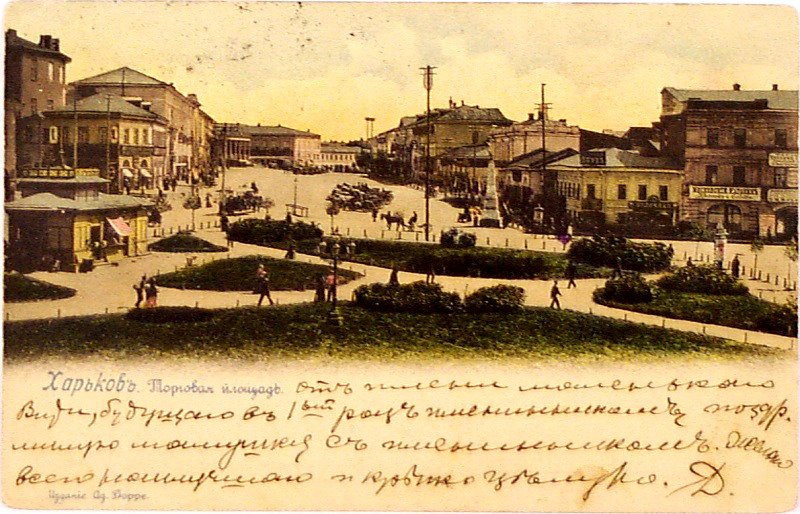 Харьковъ. Торговая площадь. отъ имени маленькаго
Види, будущаго въ 1ый разъ именинникомъ, поздр.
милую мамушку съ имениникомъ. Желаю
всего наилучшаго и крѣпко цѣлую. Д.
Изданіе Ад. Борре.